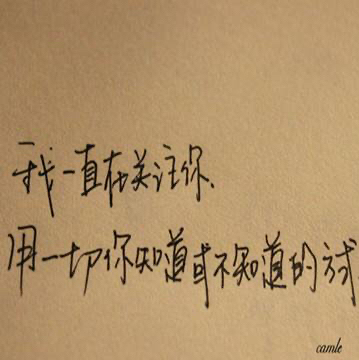 我一直在关注你、
用一切你知道或不知道的方式
camle